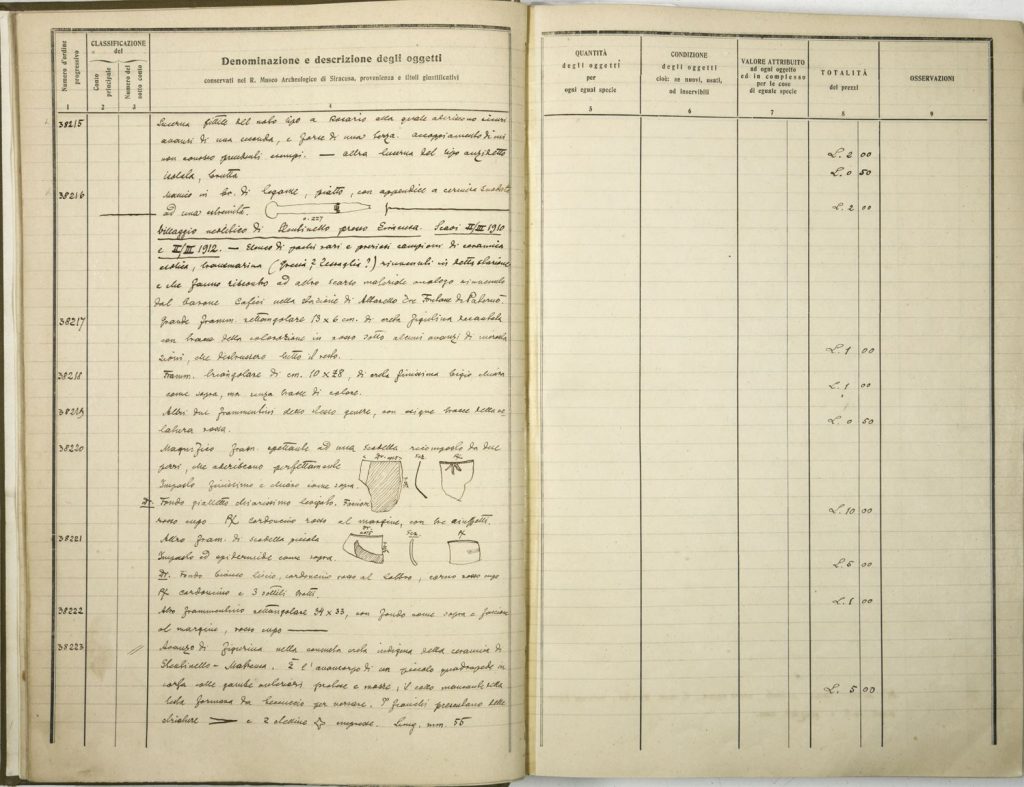 Numero d'ordine progressivo
CLASSIFICAZIONE
del
Conto principale
Numero del sotto conto
Denominazione e descrizione degli oggetti
conservati nel R. Museo Archeologico di Siracusa, provenienza e titoli giustificativi
1 2 3 4
38215 Lucerna fittile del noto tipo a Rosario alla quale aderiscono
avanzi di una seconda, e forse di una terza. accoppiamento di cui
non conosco precedenti esempi. — altra lucerna del tipo anzidetto
isolata, brutta
38216 Manico in br. di legame, piatto, con appendice a cerniera snodata
ad una estremità.
0.227
Villaggio neolitico di Stentinello presso Siracusa. Scavi II/III 1910
e II/III 1912. — Elenco di pochi rari e preziosi campioni di ceramica
esotica, transmarina (Grecia? Tessaglia?) rinvenuti in detta stazione
e che fanno riscontro ad altro scarso materiale analogo rinvenuto
dal barone Cafici nella stazione di Fontane di Palernò.
38217 Grande framm. rettangolare 13 x 6 cm. di creta figulina
con tracce della colorazione in rosso sotto alcuni avanzi di incrosta
zioni, che distrussero tutto il resto.
38218 Framm. triangolare di cm. 10 x 78, di creta finissima bigio chiara
come sopra, ma senza tracce di colore.
38219 Altri due frammentini dello stesso genere, con esigue tracce della
latura rossa.
38220 Magnifico fram. spettante ad una scodella ricomposto da due
pezzi, che aderiscono perfettamente
Impasto finissimo e chiaro come sopra.
Dr. Fondo gialletto chiarissimo levigato.
rosso cupo Rv. cordoncino rosso al margine, con tre ciuffetti.
38221 Altro fram. di scodella piccola
Impasto ed epidermide come sopra
Dr. Fondo bianco liscio, cordoncino rosso al labbro, rosso cupo
Rv. cordoncino e 3 sottili tratti.
38222 Altro frammentino rettangolare 34 x 33, con fondo come sopra e fascione
al margine, rosso cupo —
38223 // Avanzo di figurina nella consueta creta indigena della ceramica di
Stentinello - Matrensa. È l'avancorpo di un piccolo quadrupede in
corsa colle gambe anteriori protese e mosse, il collo mancante della
testa formava da beccuccio per versare. I fianchi presentano delle
striature > e 2 impresse. Lung. mm. 55
QUANTITÀ
degli oggetti
per
ogni egual specie
CONDIZIONE
degli oggetti
cioè: se nuovi, usati,
od inservibili
VALORE ATTRIBUITO
ad ogni oggetto
ed in complesso
per le cose
di eguale specie
TOTALITÀ
dei prezzi
OSSERVAZIONI
5 6 7 8 9
L. 2 00
L. 0 50
L. 2 00
L. 1 00
L. 1 00
L. 0 50
L. 10 00
L. 5 00
L. 1 00
L. 5 00